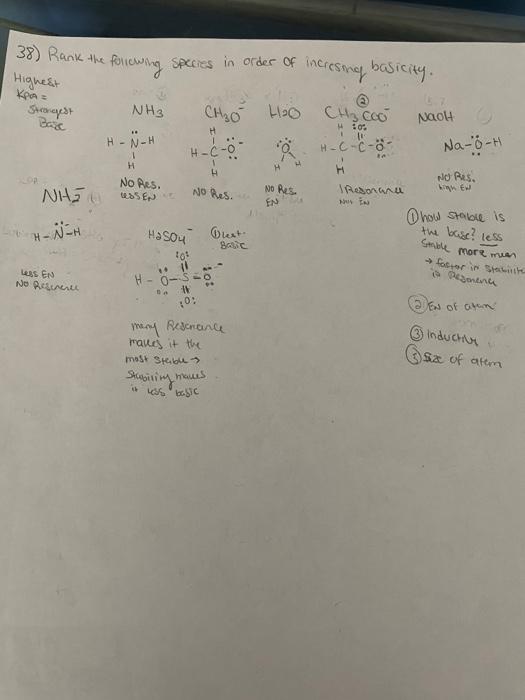 38) Rank the following species in order of incresing basicity.
Highest
Kpa =
Strongest
Base
NH3 CH3O⁻ H2O CH3COO⁻ NaOH
②
H - N - H
H
H
H - C - O
H
O
H H
H :O:
H - C - C - O
H
Na - O - H
No Res.
less EN
No Res.
No Res.
EN
1 Resonance
No Res.
high EN
NH2⁻
H - N - H
less EN
No Resonence
HSO4⁻ ① least
Basic
:O:
H - O - S = O
:O:
many Resonance
makes it the
most stable →
Stability makes
it less basic
① how stable is
the base? less
Stable more
→ factor in stability
is Resonence
② EN of atom
③ inductive
③ Size of atom